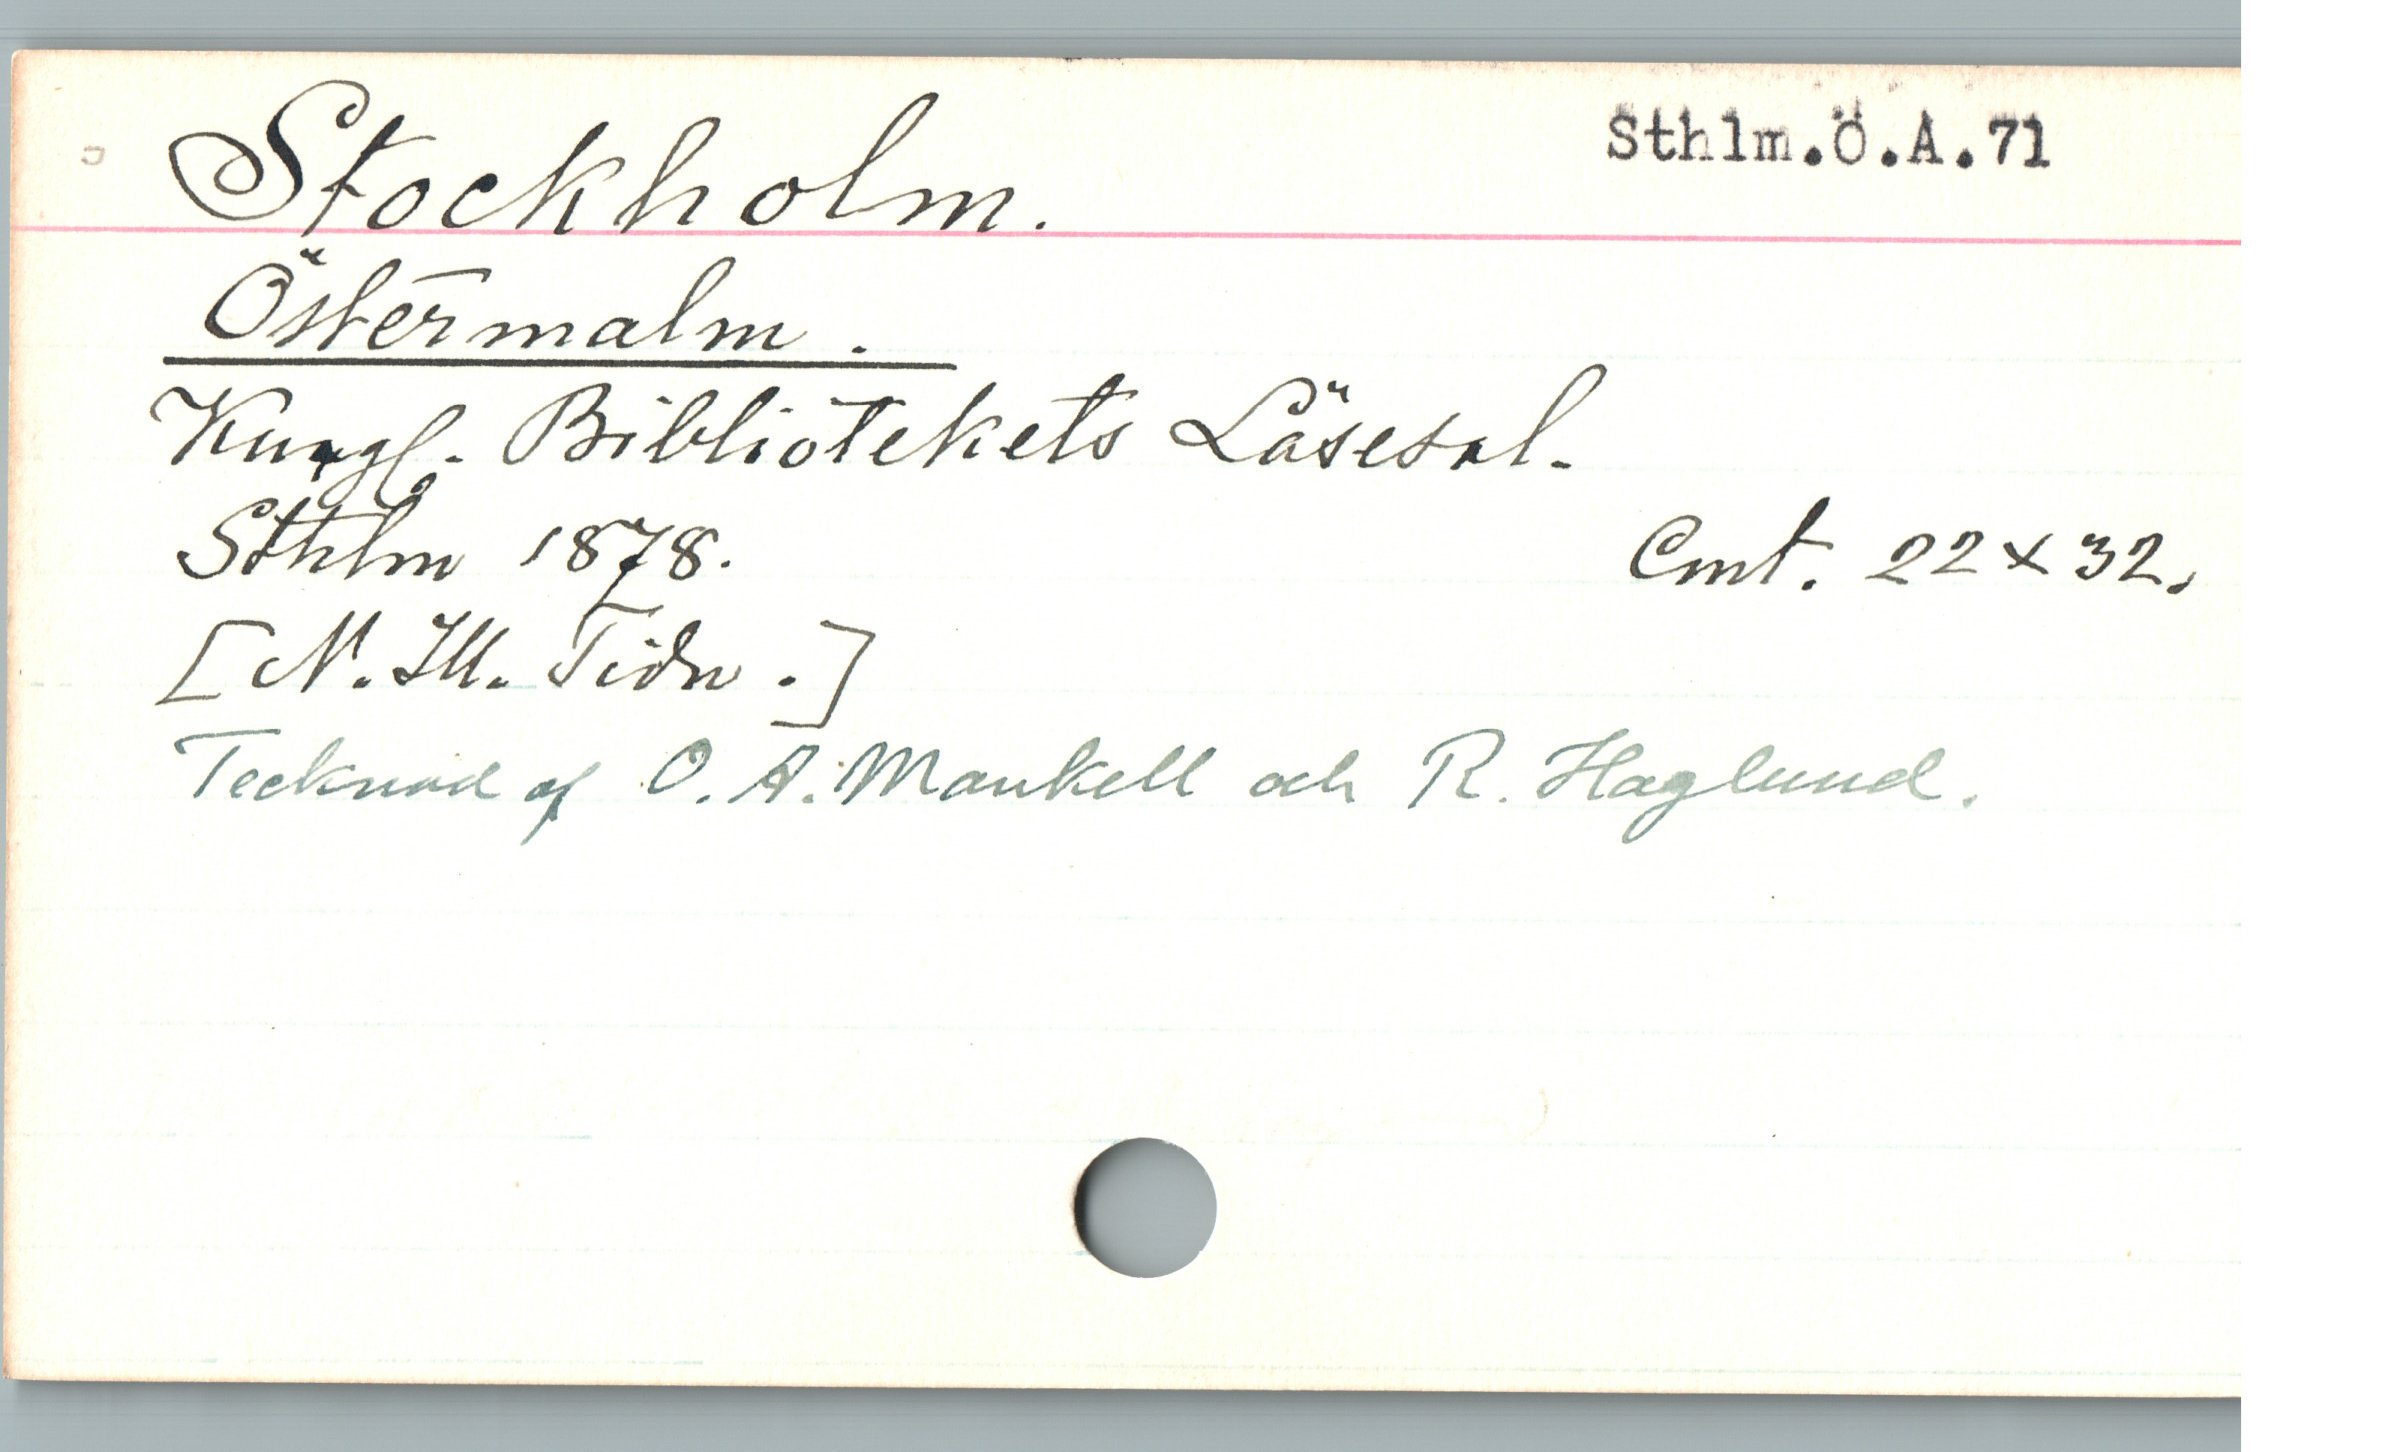 Stockholm.
Sthlm.Ö.A.71
Östermalm.
Kungl. Bibliotekets Läsesal.
Sthlm 1878.
Cmt. 22 x 32.
[N. Ill. Tidn.]
Tecknad af O. A. Mankell och R. Haglund.